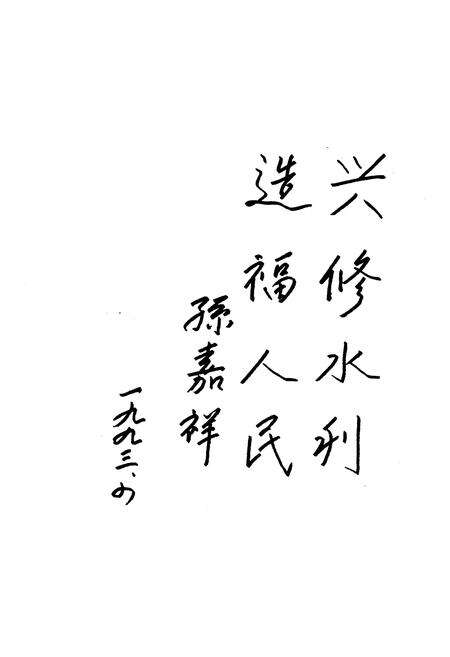 兴修水利
造福人民
孫嘉祥
一九九三、四